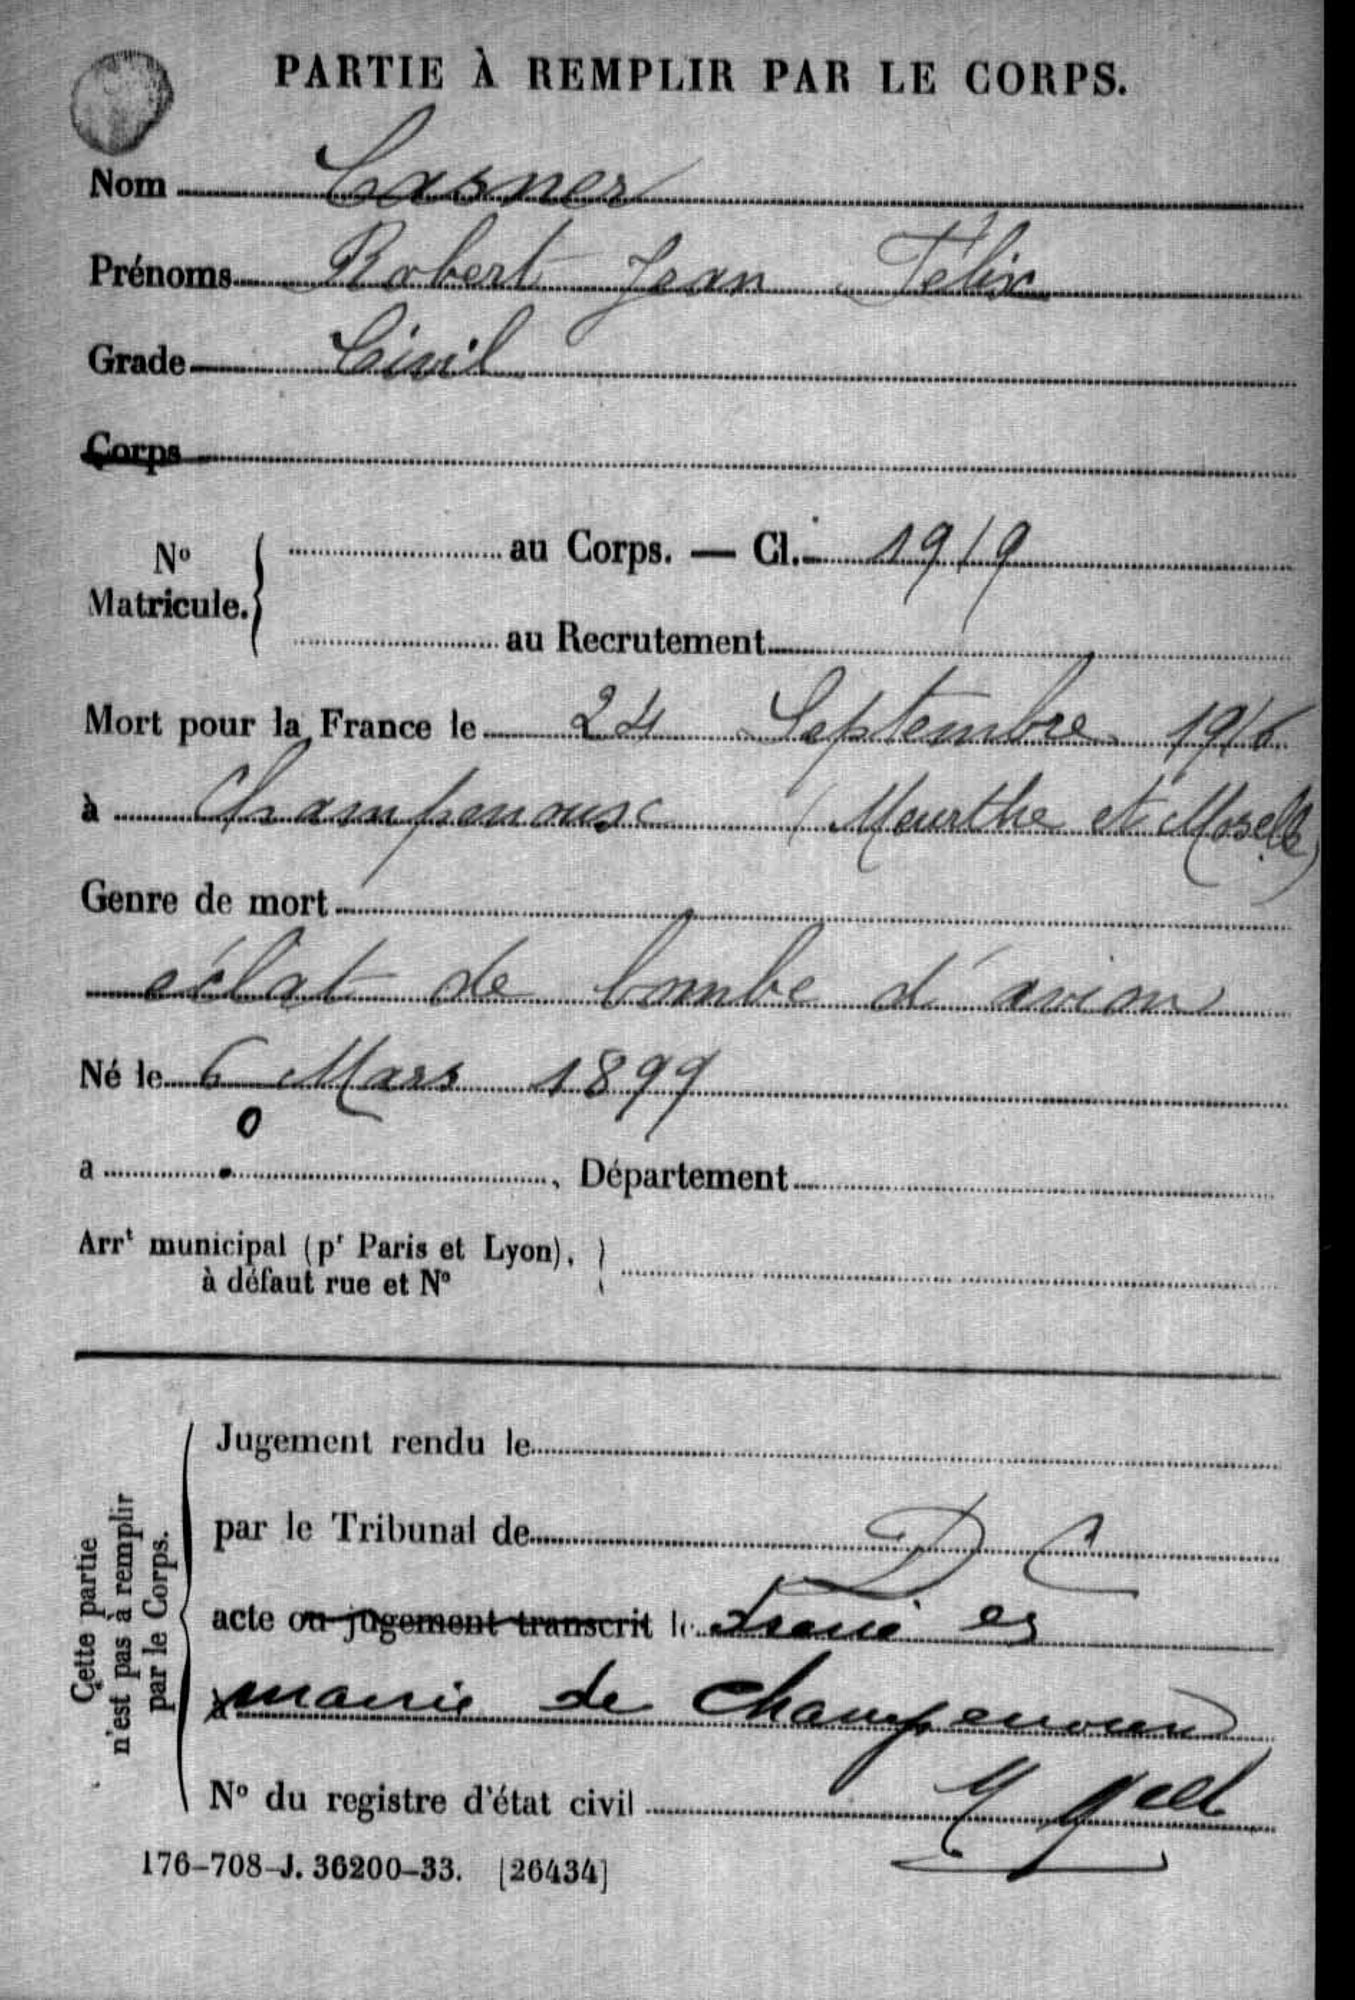 PARTIE À REMPLIR PAR LE CORPS.
Nom Casner
Prénoms Robert Jean Félix
Grade Civil
Corps
No Matricule. { au Corps. — Cl. 1919
au Recrutement
Mort pour la France le 24 Septembre 1916
à Champenoux (Meurthe et Moselle)
Genre de mort
éclat de bombe d'avion
Né le 6 Mars 1899
a , Département
Arrt municipal (pr Paris et Lyon), }
à défaut rue et No
Cette partie
n'est pas à remplir
par le Corps.
Jugement rendu le
par le Tribunal de D C
acte ou jugement transcrit le
mairie de Champenoux
No du registre d'état civil M et M
176-708-J. 36200-33. [26434]